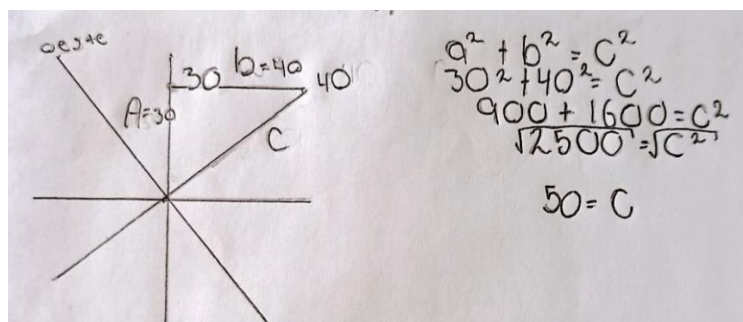 oeste
30 b=40 40
A=30
C
a² + b² = C²
30² + 40² = C²
900 + 1600 = C²
√2500 = √C²
50 = C